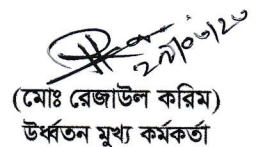 (মোঃ রেজাউল করিম)
উর্ধ্বতন মুখ্য কর্মকর্তা